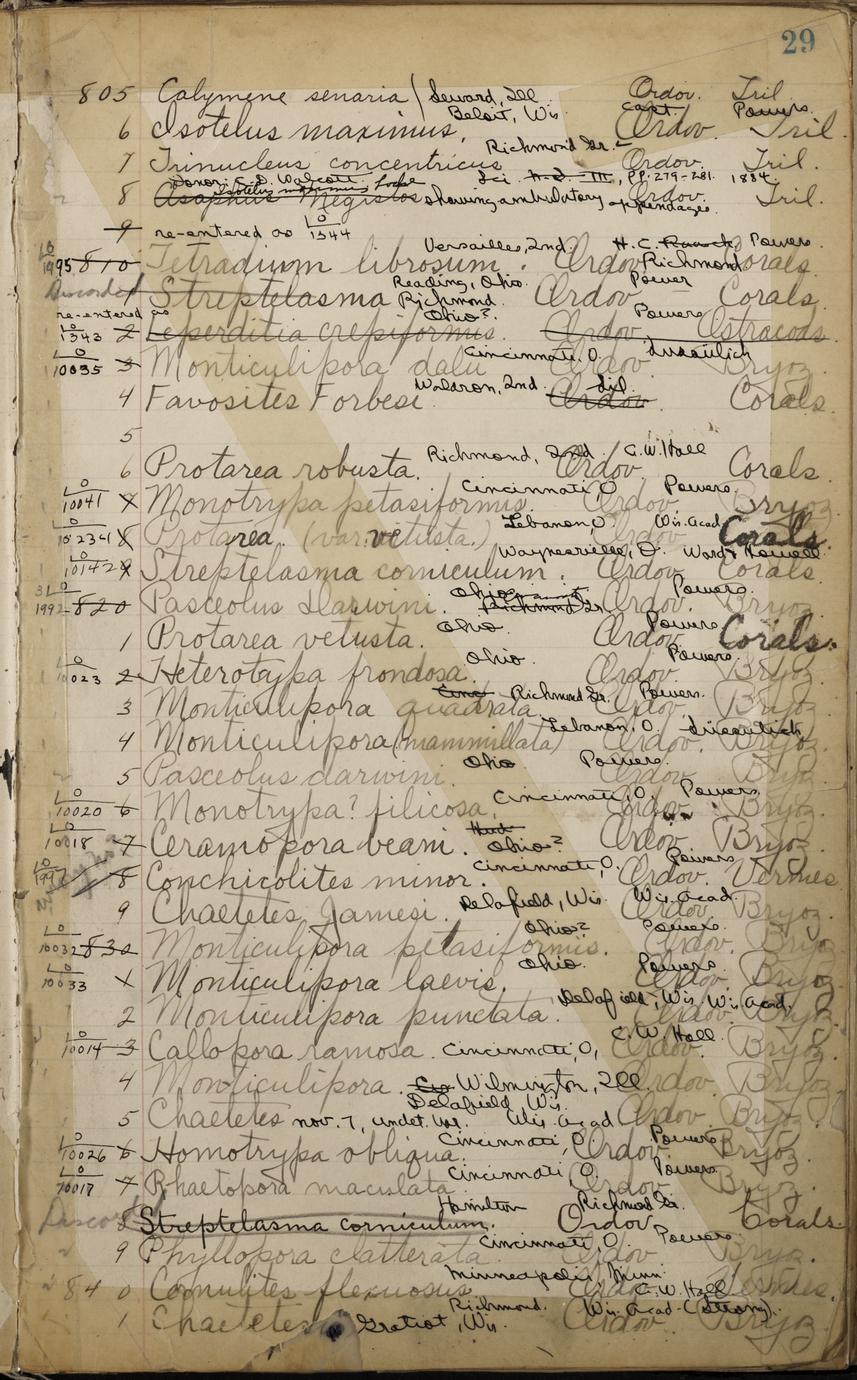 29
805 Calymene senaria / Seward, Ill. Ordov. Tril.
Beloit, Wis. Powers
6 Isotelus maximus, Ordov. Tril.
Richmond Gr.
7 Trinucleus concentricus Ordov. Tril.
Donor, C. D. Walcott. Sci. N.S. III, PP. 279-281. 1884.
Isotelus maximus Locke
8 Asaphus Megistos showing ambulatory appendages. Ordov. Tril.
9 re-entered as LO 1344
Versailles, Ind. H. C. Powers
LO 1995 810 Tetradium librosum. Ordov Richmond Corals.
Discorded 1 Streptelasma Reading, Ohio. Richmond Ordov Power Corals.
re-entered as Ohio? Powers
LO 1343 2 Leperditia crepiformis. Ordov. Ostracods
LO 10035 3 Monticulipora dalii Cincinnati, O. Ordov. Bryoz.
4 Favosites Forbesi Waldron, Ind. Sil. Ordov Corals.
5
6 Protarea robusta. Richmond, Ind. Ordov. C. W. Hall Corals.
LO 10041 7 Monotrypa petasiformis. Cincinnati, O. Ordov. Powers Bryoz.
LO 10234 8 Protarea. (var. vetusta.) Lebanon, O. Ordov. Wis. Acad. Corals
Waynesville, O. Ward & Howell
LO 10142 9 Streptelasma corniculum. Ordov. Corals
31 LO 1992 820 Pasceolus Darwini. Ohio Richmond Gr. Ordov. Powers Bryoz.
1 Protarea vetusta. Ohio. Ordov. Powers Corals.
LO 10023 2 Heterotypa frondosa. Ohio. Ordov. Powers. Bryoz.
3 Monticulipora quadrata Cinc Richmond Gr. Ordov. Powers. Bryoz.
4 Monticulipora (mammillata) Lebanon, O. Ordov. Bryoz.
5 Pasceolus darwini. Ohio Powers. Ordov. Bryoz.
LO 10020 6 Monotrypa? filicosa. Cincinnati, O. Ordov. Powers. Bryoz.
LO 10018 7 Ceramopora beani. Ohio? Ordov. Bryoz.
LO 1997 8 Conchicolites minor. Cincinnati, O. Ordov. Powers Vermes.
9 Chaetetes Jamesi. Delafield, Wis. Ordov. Wis. Acad. Bryoz.
LO 10032 830 Monticulipora petasiformis. Ohio? Ordov. Powers Bryoz.
LO 10033 1 Monticulipora laevis. Ohio. Ordov. Powers Bryoz.
2 Monticulipora punctata. Delafield, Wis. Ordov. Wis. Acad. Bryoz.
LO 10014 3 Callopora ramosa. Cincinnati, O, Ordov. C. W. Hall Bryoz.
4 Monticulipora. Cin Wilmington, Ill. Ordov. Bryoz.
5 Chaetetes nov. ?, undet. var. Delafield, Wis. Wis. Acad Ordov. Bryoz.
LO 10026 6 Homotrypa obliqua. Cincinnati, O. Ordov. Powers Bryoz.
LO 10017 7 Rhaetopora maculata Cincinnati, O. Ordov. Powers Bryoz.
Discor 8 Streptelasma corniculum. Hamilton Richmond Gr. Ordov Corals.
9 Phyllopora clatterata. Cincinnati, O. Ordov. Powers Bryoz.
840 Cornulites flexuosus. Minneapolis, Minn. Ordov. C. W. Hall Vermes.
1 Chaetetes Richmond. Gratiot, Wis. Ordov. Wis. Acad. (Strong). Bryoz.